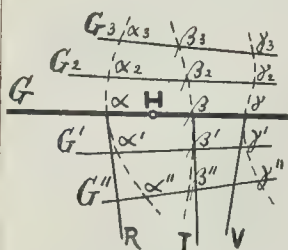 G₃ α₃ β₃ γ₃
G₂ α₂ β₂ γ₂
G α H β γ
G' α' β' γ'
G'' α'' β'' γ''
R T V